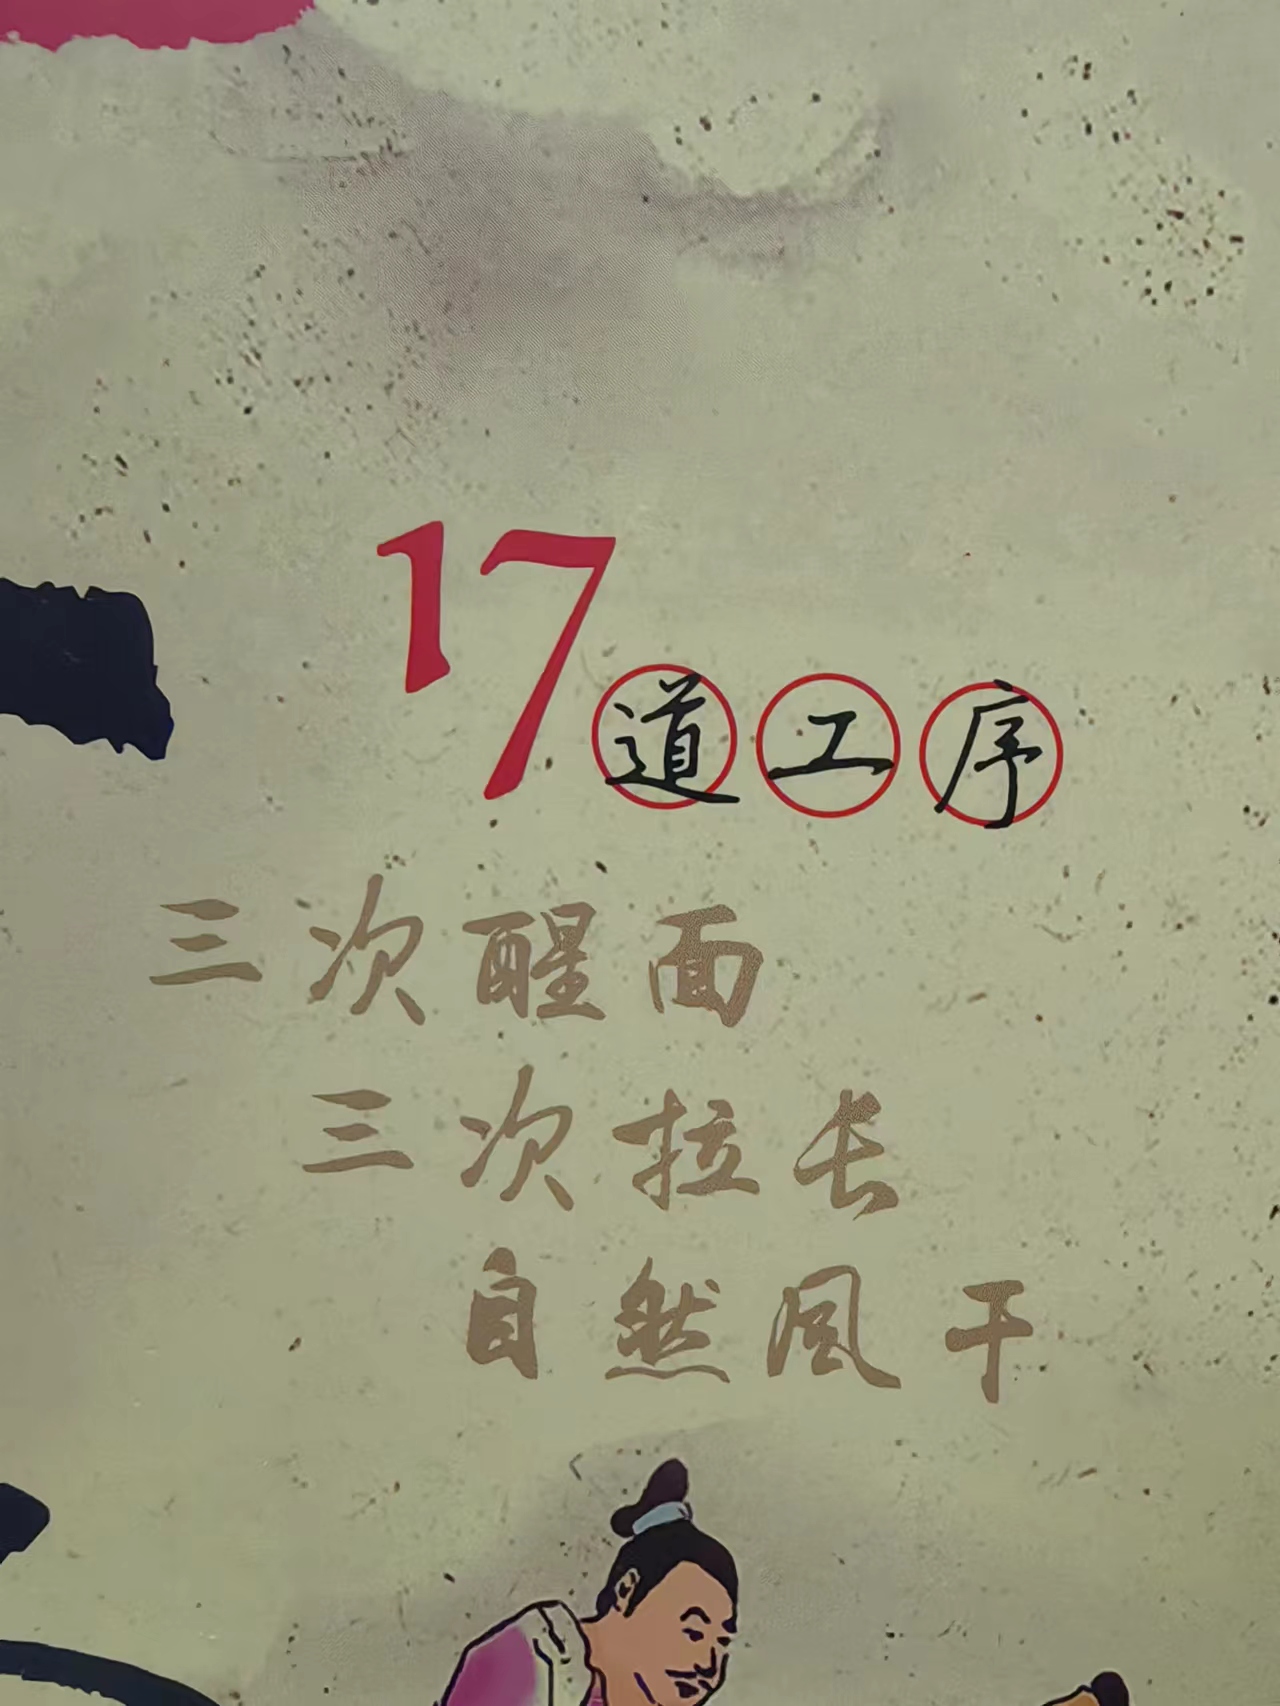 17道工序
三次醒面
三次拉长
自然风干